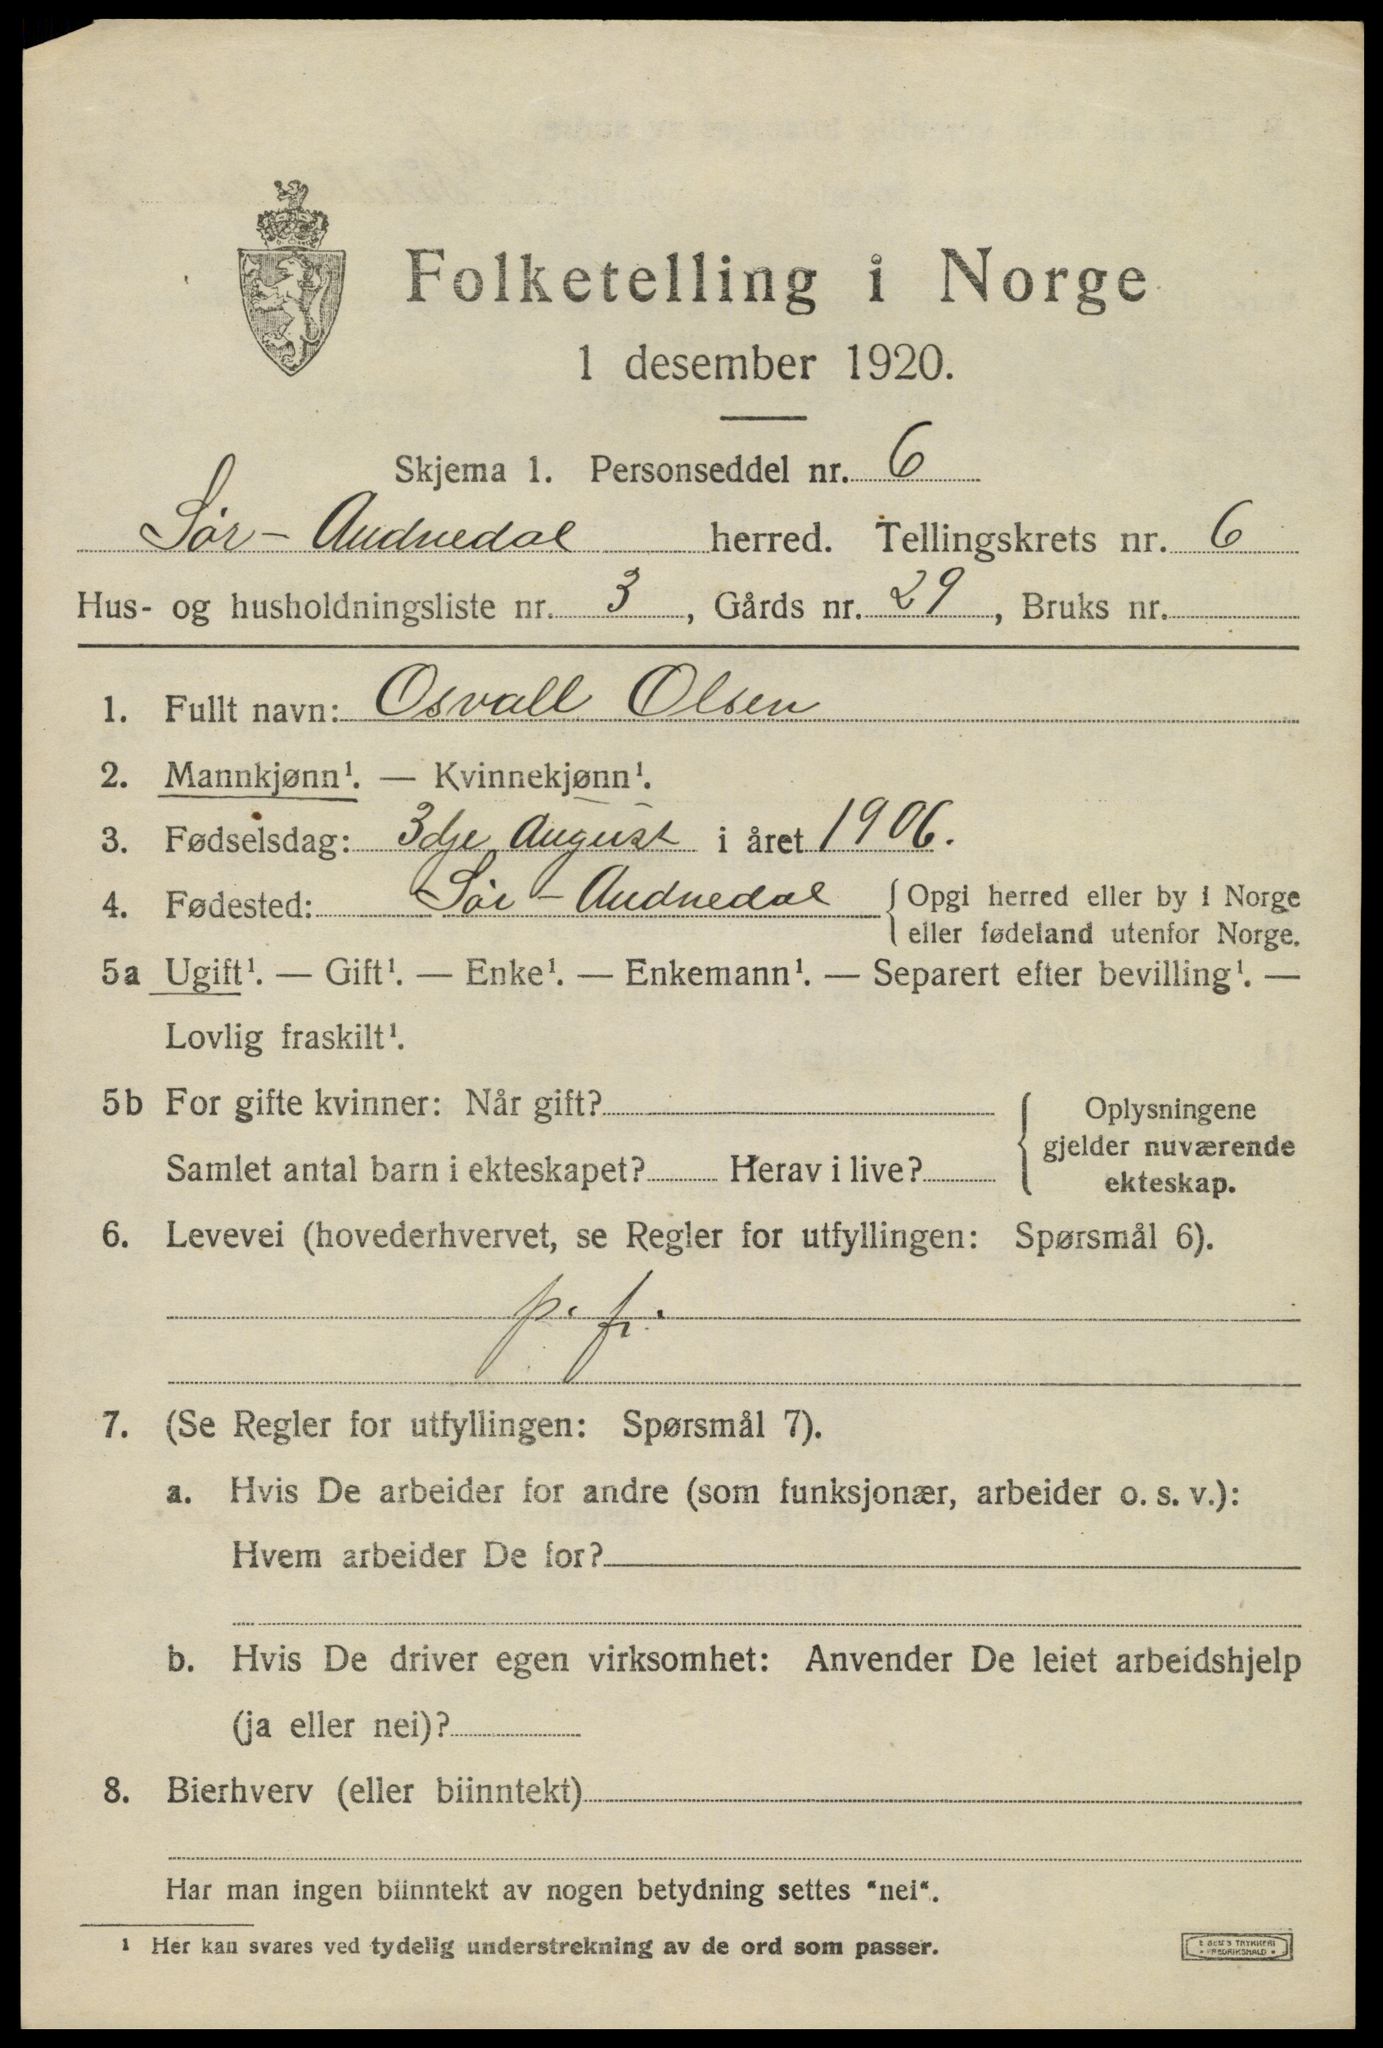 Folketelling i Norge
1 desember 1920.
Skjema 1. Personseddel nr. 6
Sør-Audnedal herred. Tellingskrets nr. 6
Hus- og husholdningsliste nr. 3, Gårds nr. 29, Bruks nr.
1. Fullt navn: Osvall Olsen
2. Mannkjønn¹. — Kvinnekjønn¹.
3. Fødselsdag: 3dje August i året 1906.
4. Fødested: Sør-Audnedal { Opgi herred eller by i Norge
eller fødeland utenfor Norge.
5a Ugift¹. — Gift¹. — Enke¹. — Enkemann¹. — Separert efter bevilling¹. —
Lovlig fraskilt¹.
5b For gifte kvinner: Når gift? { Oplysningene
gjelder nuværende
Samlet antal barn i ekteskapet? Herav i live? ekteskap.
6. Levevei (hovederhvervet, se Regler for utfyllingen: Spørsmål 6).
p. f.
7. (Se Regler for utfyllingen: Spørsmål 7).
a. Hvis De arbeider for andre (som funksjonær, arbeider o. s. v.):
Hvem arbeider De for?
b. Hvis De driver egen virksomhet: Anvender De leiet arbeidshjelp
(ja eller nei)?
8. Bierhverv (eller biinntekt)
Har man ingen biinntekt av nogen betydning settes "nei".
¹ Her kan svares ved tydelig understrekning av de ord som passer.
TRYKKERI
FREDRIKSHALD